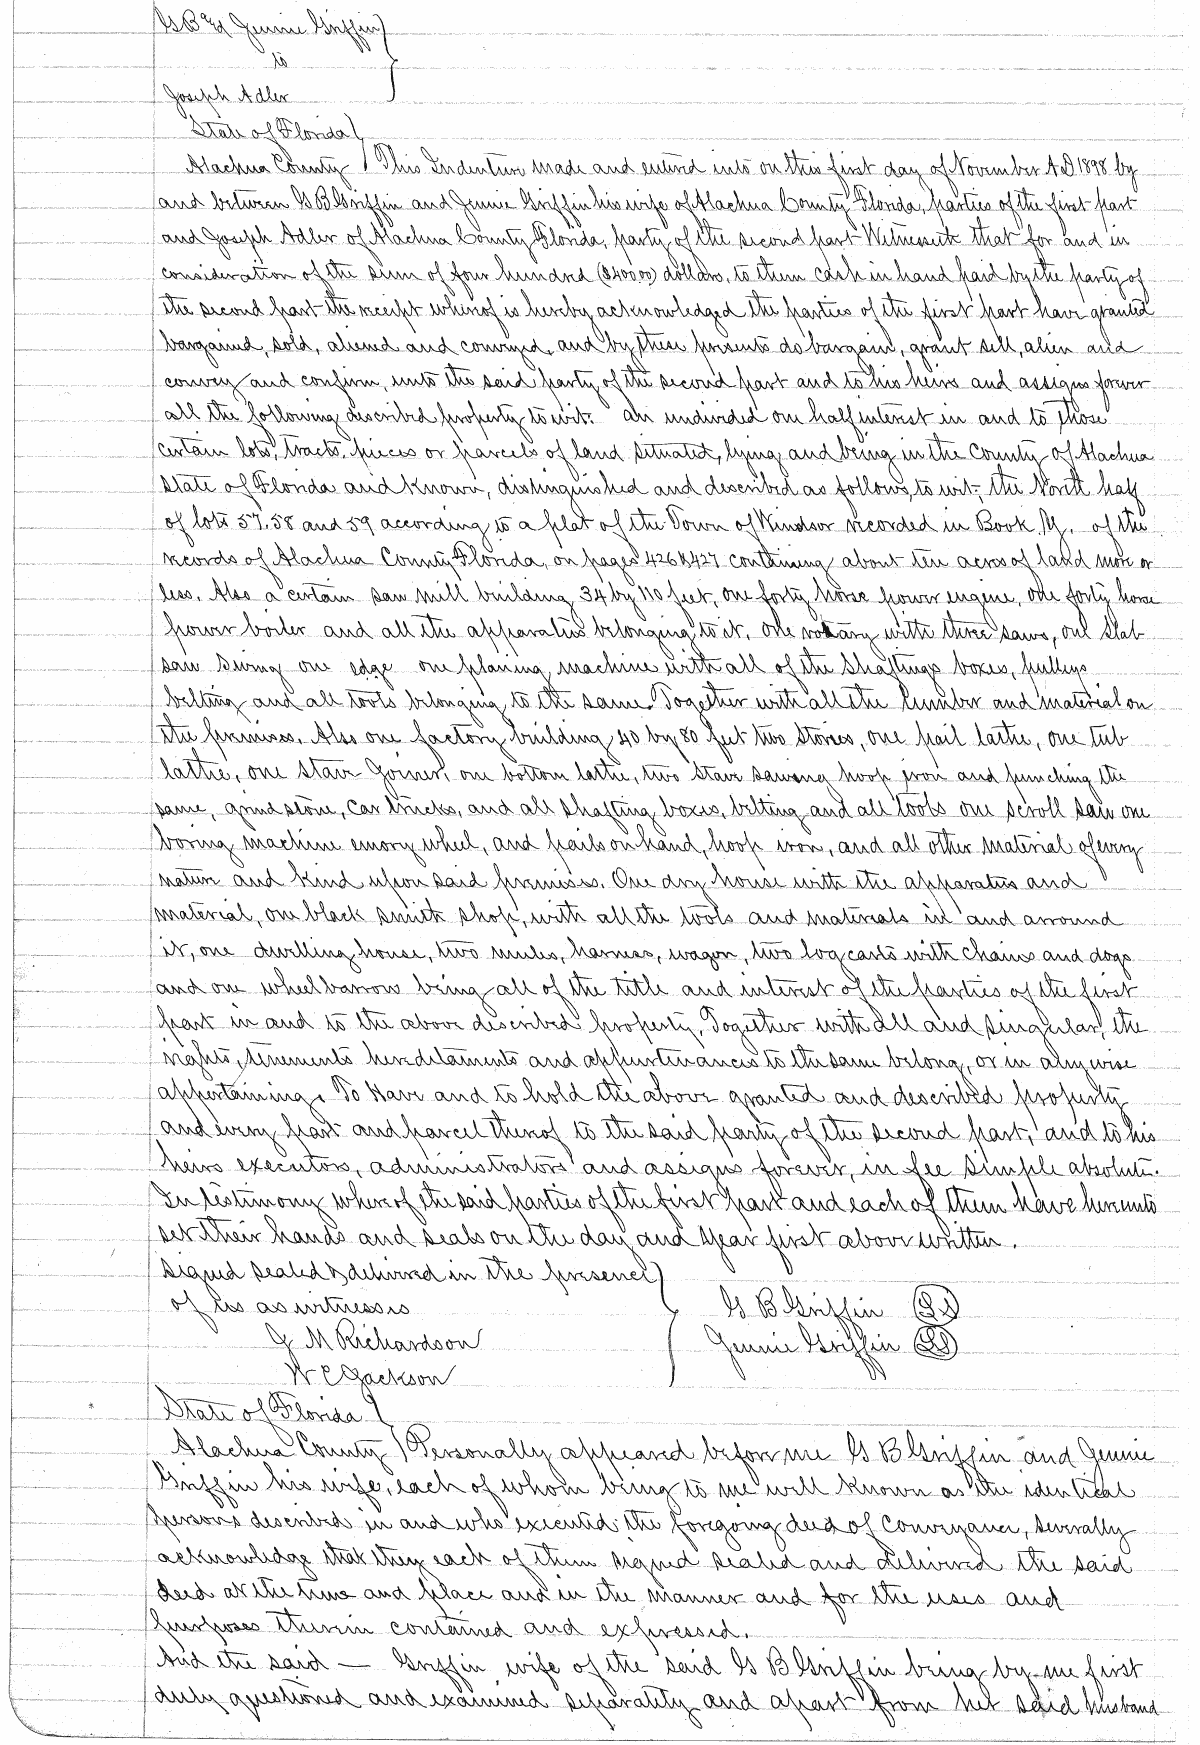 G B & Jennie Griffin
to
Joseph Adler
State of Florida
Alachua County This Indenture made and entered into on this first day of November A.D 1898 by
and between G B Griffin and Jennie Griffin his wife of Alachua County Florida, parties of the first part
and Joseph Adler of Alachua County Florida, party of the second part Witnesseth that for and in
consideration of the sum of four hundred ($400.00) dollars, to them cash in hand paid by the party of
the second part the receipt whereof is hereby acknowledged the parties of the first part have granted
bargained, sold, aliened and conveyed, and by these presents do bargain, grant sell, alien and
convey and confirm, unto the said party of the second part and to his heirs and assigns forever
all the following described property to wit: an undivided one half interest in and to those
certain lots, tracts, pieces or parcels of land situated, lying and being in the County of Alachua
State of Florida and known, distinguished and described as follows, to wit: the North half
of lots 57, 58 and 59 according to a plat of the Town of Windsor recorded in Book of the
records of Alachua County Florida, on pages 426 & 427 containing about ten acres of land more or
less. Also a certain saw mill building 34 by 110 feet, one forty horse power engine, one forty horse
power boiler and all the apparatus belonging to it, one rotary with three saws, one slab
saw swing one edge one planing machine with all of the shaftings boxes, pulleys
belting and all tools belonging to the same. Together with all the lumber and material on
the premises. Also one factory building 40 by 80 feet two stories, one pail lathe, one tub
lathe, one stave Joiner, one bottom lathe, two stave sawing hoop iron and punching the
same, grindstone, car trucks, and all shafting boxes, belting and all tools one scroll saw one
boring machine emory wheel, and pails on hand, hoop iron, and all other material of every
nature and kind upon said premises. One dry house with the apparatus and
material, one black smith shop, with all the tools and materials in and arround
it, one dwelling house, two mules, harness, wagon, two log carts with chains and dogs
and one wheel barrow being all of the title and interest of the parties of the first
part in and to the above described property, Together with all and singular, the
rights, tenements hereditaments and appurtenances to the same belong, or in any wise
appertaining. To Have and to hold the above granted and described property
and every part and parcel thereof to the said party of the second part, and to his
heirs executors, administrators and assigns forever, in fee simple absolute.
In testimony whereof the said parties of the first part and each of them have hereunto
set their hands and seals on the day and year first above written.
Signed sealed & delivered in the presence
of us as witnesses
G B Griffin
G M Richardson
Jennie Griffin
W C Jackson
State of Florida
Alachua County Personally appeared before me G B Griffin and Jennie
Griffin his wife, each of whom being to me well known as the identical
persons described in and who executed the foregoing deed of conveyance, severally
acknowledge that they each of them signed sealed and delivered the said
deed at the time and place and in the manner and for the uses and
purposes therein contained and expressed.
And the said — Griffin wife of the said G B Griffin being by me first
duly questioned and examined separately and apart from her said husband